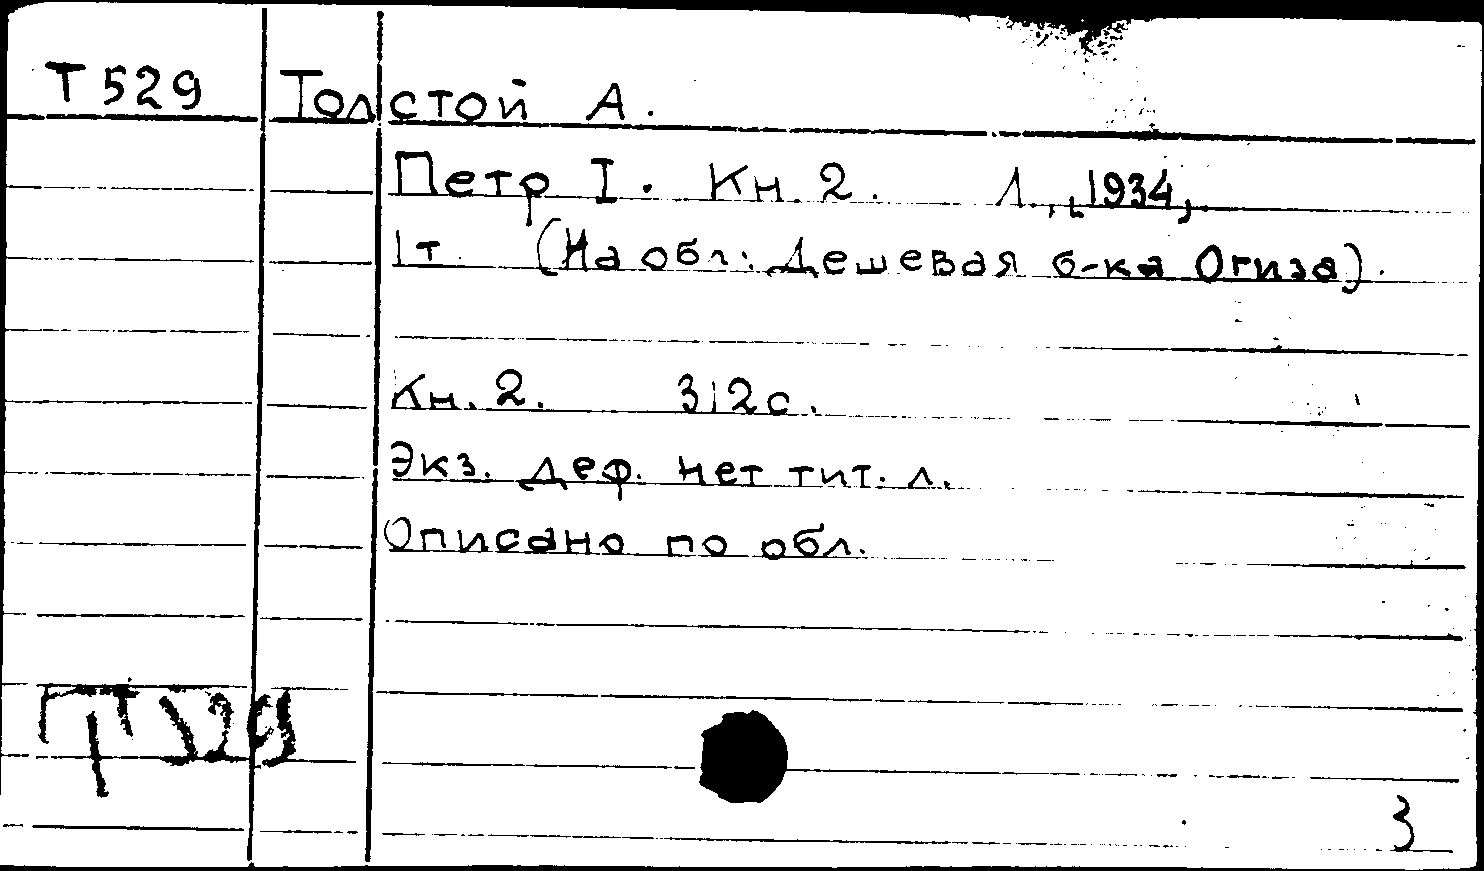 Т529 Толстой А.
Петр I. Кн. 2. Л., [1934],
1т. (На обл.: Дешевая б-ка Огиза).
Кн. 2. 312с.
Экз. деф. нет тит. л.
Описано по обл.
Т529
3